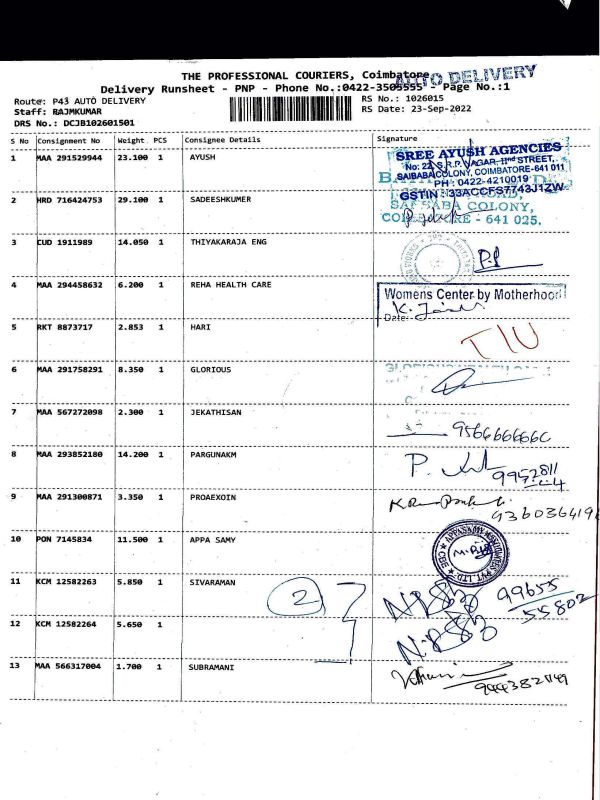 THE PROFESSIONAL COURIERS, Coimbatore
AUTO DELIVERY
Delivery Runsheet - PNP - Phone No.:0422-3505555 Page No.:1
Route: P43 AUTO DELIVERY
RS No.: 1026015
Staff: RAJMKUMAR
RS Date: 23-Sep-2022
DRS No.: DCJB102601501
S No Consignment No Weight PCS Consignee Details Signature
1 MAA 291529944 23.100 1 AYUSH
SREE AYUSH AGENCIES
SAIBABA COLONY, COIMBATORE-641 011
PH : 0422-4210019
GSTIN : 33ACCFS7743J1ZW
2 HRD 716424753 29.100 1 SADEESHKUMER
COLONY,
641 025.
3 CUD 1911989 14.050 1 THIYAKARAJA ENG
P.P
4 MAA 294458632 6.200 1 REHA HEALTH CARE
Womens Center by Motherhood
Date:
5 RKT 8873717 2.853 1 HARI
6 MAA 291758291 8.350 1 GLORIOUS
7 MAA 567272098 2.300 1 JEKATHISAN
8 MAA 293852180 14.200 1 PARGUNAKM
9 MAA 291300871 3.350 1 PROAEXOIN
10 PON 7145834 11.500 1 APPA SAMY
11 KCM 12582263 5.850 1 SIVARAMAN
2
99655
55802
12 KCM 12582264 5.650 1
13 MAA 566317004 1.700 1 SUBRAMANI